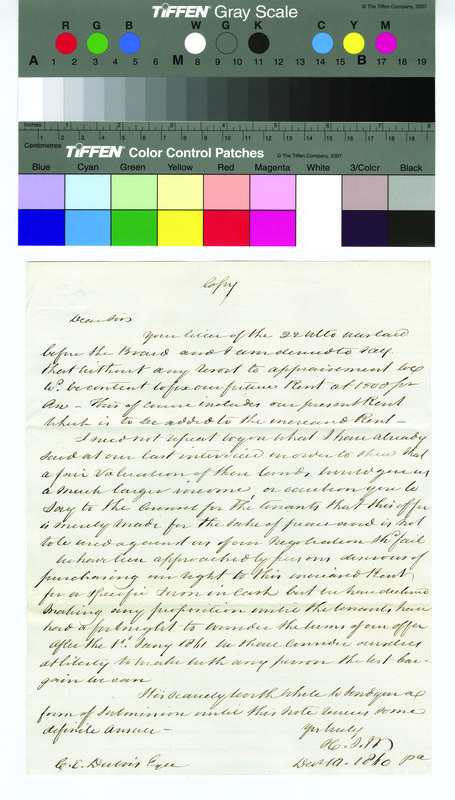 TIFFEN® Gray Scale
© The Tiffen Company, 2007
R G B W G K C Y M
A 1 2 3 4 5 6 M 8 9 10 11 12 13 14 15 B 17 18 19
Inches 1 2 3 4 5 6 7 8
Centimetres 1 2 3 4 5 6 7 8 9 10 11 12 13 14 15 16 17 18 19
TIFFEN® Color Control Patches
© The Tiffen Company, 2007
Blue Cyan Green Yellow Red Magenta White 3/Color Black
Copy
Dear Sir
Your letter of the 22 Ulto was laid
before the Board and I am desired to say
that without any resort to appraisement we
wd. be content to fix our future Rent at 1000 pr
Ann — This of course includes our present Rent
which is to be added to the increased Rent —
I need not repeat to you what I have already
said at our last interview in order to shew that
a fair valuation of these lands would give us
a much larger income, or caution you to
say to the Counsel for the tenants that this offer
is merely made for the sake of peace and is not
to be used against us if our negotiation shd. fail
We have been approached by persons desirous of
purchasing our right to this increased Rent
for a specific sum in cash but we have declined
making any proposition until the tenants have
had a fortnight to consider the terms of our offer
After the 1st. Jany 1861 we shall consider ourselves
at liberty to make with any person the best bar-
gain we can
It is scarcely worth while to send you a
form of submission until this note receives some
definite answer —
Yrs truly
C. E. Dubois Esqr
Decr 10. 1860